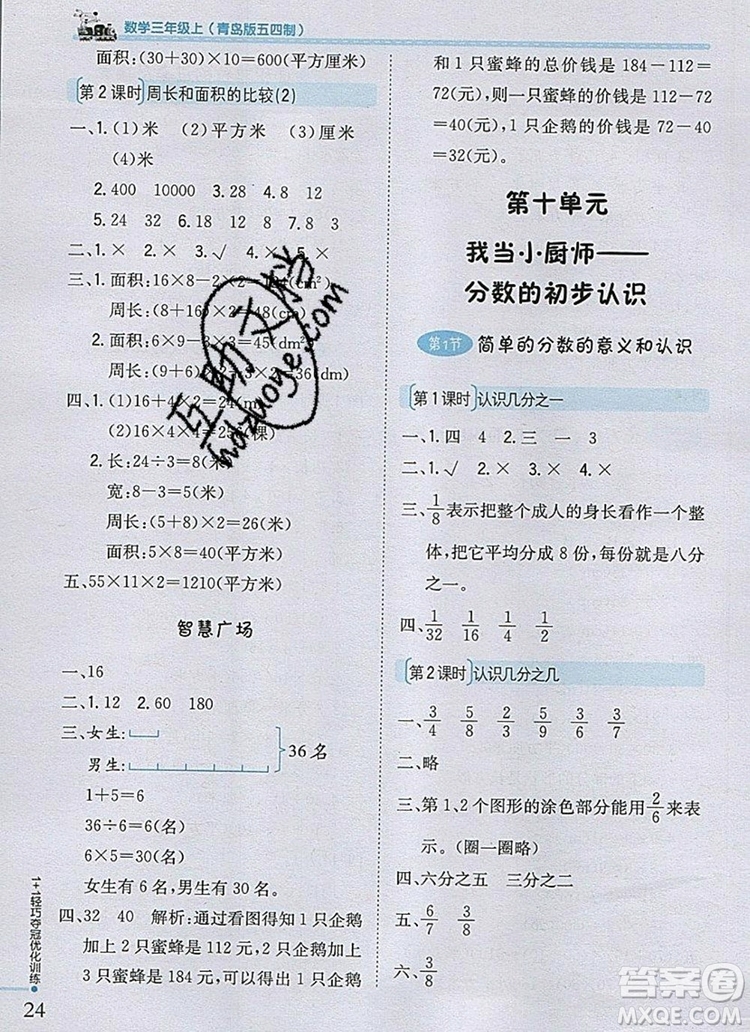 数学三年级上(青岛版五四制)
面积:(30+30)×10=600(平方厘米)
第2课时 周长和面积的比较(2)
一、1.(1)米 (2)平方米 (3)平方米
(4)米
2.400 10000 3.28 4.8 12
5.24 6.30 48 24 7.8 3
二、1.× 2.× 3.√ 4.× 5.×
三、1.面积:16×8-2×2=124(cm²)
周长:(8+16)×2=48(cm)
2.面积:6×9-3×3=45(dm²)
周长:(9+6)×2+3×2=36(dm)
四、1.(1)16×4+2=24(米)
(2)16×4×4=256(棵)
2.长:24÷3=8(米)
宽:8-3=5(米)
周长:(5+8)×2=26(米)
面积:5×8=40(平方米)
五、55×11×2=1210(平方米)
智慧广场
一、16
二、1.12 2.60 180
三、女生:
男生:
36名
1+5=6
36÷6=6(名)
6×5=30(名)
女生有6名,男生有30名。
四、32 40 解析:通过看图得知1只企鹅
加上2只蜜蜂是112元,2只企鹅加上
3只蜜蜂是184元,可得出1只企鹅
和1只蜜蜂的总价钱是184-112=
72(元),则1只蜜蜂的价钱是112-72
=40(元),1只企鹅的价钱是72-40
=32(元)。
第十单元
我当小厨师——
分数的初步认识
第1节 简单的分数的意义和认识
第1课时 认识几分之一
一、1.四 4 2.三 一 3
二、1.√ 2.× 3.× 4.×
三、1/8表示把整个成人的身长看作一个整
体,把它平均分成8份,每份就是八分
之一。
四、1/32 1/16 1/4 1/8
第2课时 认识几分之几
一、3/4 5/8 2/5 5/9 3/6 3/7
二、略
三、第1、2个图形的涂色部分能用2/6来表
示。(圈一圈略)
四、六分之五 三分之二
五、6/7 3/7
六、3/8
1+1轻巧夺冠优化训练
24
互助文档
hdzuoye.com
答案圈
MXQE.COM